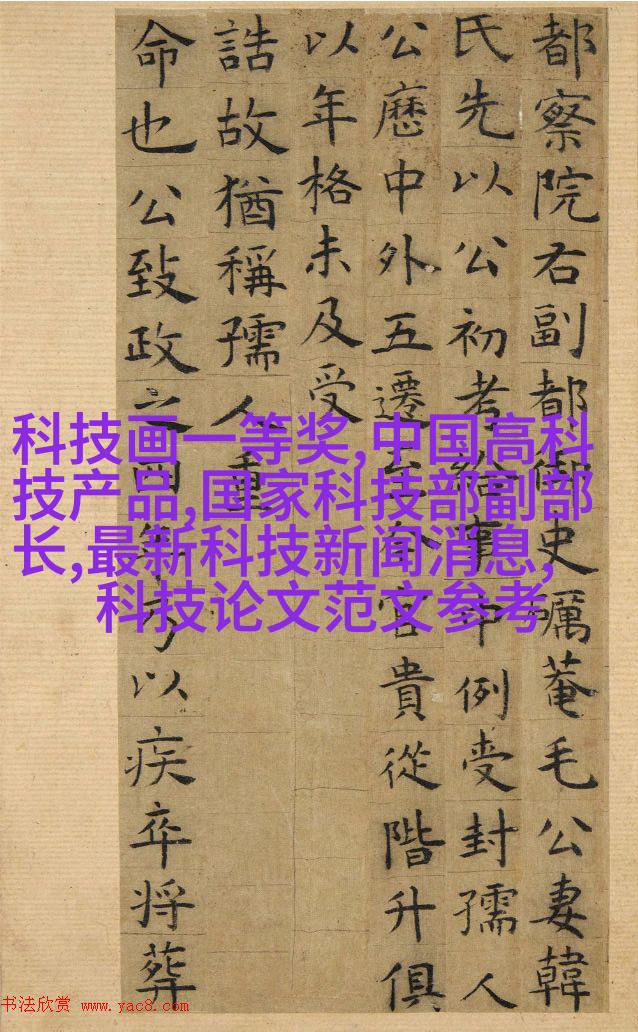 都察院右副都御史礪菴毛公妻韓
氏先以公初考給事中例受封孺人
公歷中外五遷至今官貴從階升俱
以年格未及受
誥故猶稱孺人重
命也公致政之四年乃以疾卒將葬
科技画一等奖,中国高科
技产品,国家科技部副部
长,最新科技新闻消息,
科技论文范文参考
书法欣赏 www.yac8.com